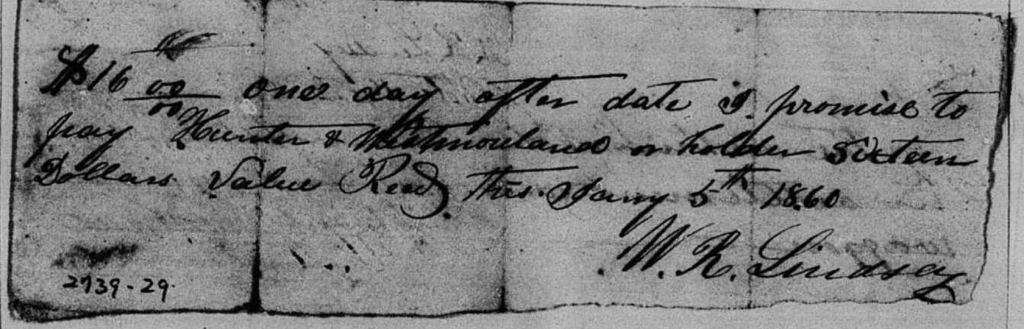 $16 00/00 One day after date I promise to
pay Hunter & Westmoreland or holder Sixteen
Dollars Value Recd This Jany 5th 1860
W. R. Lindsay
2739-29.